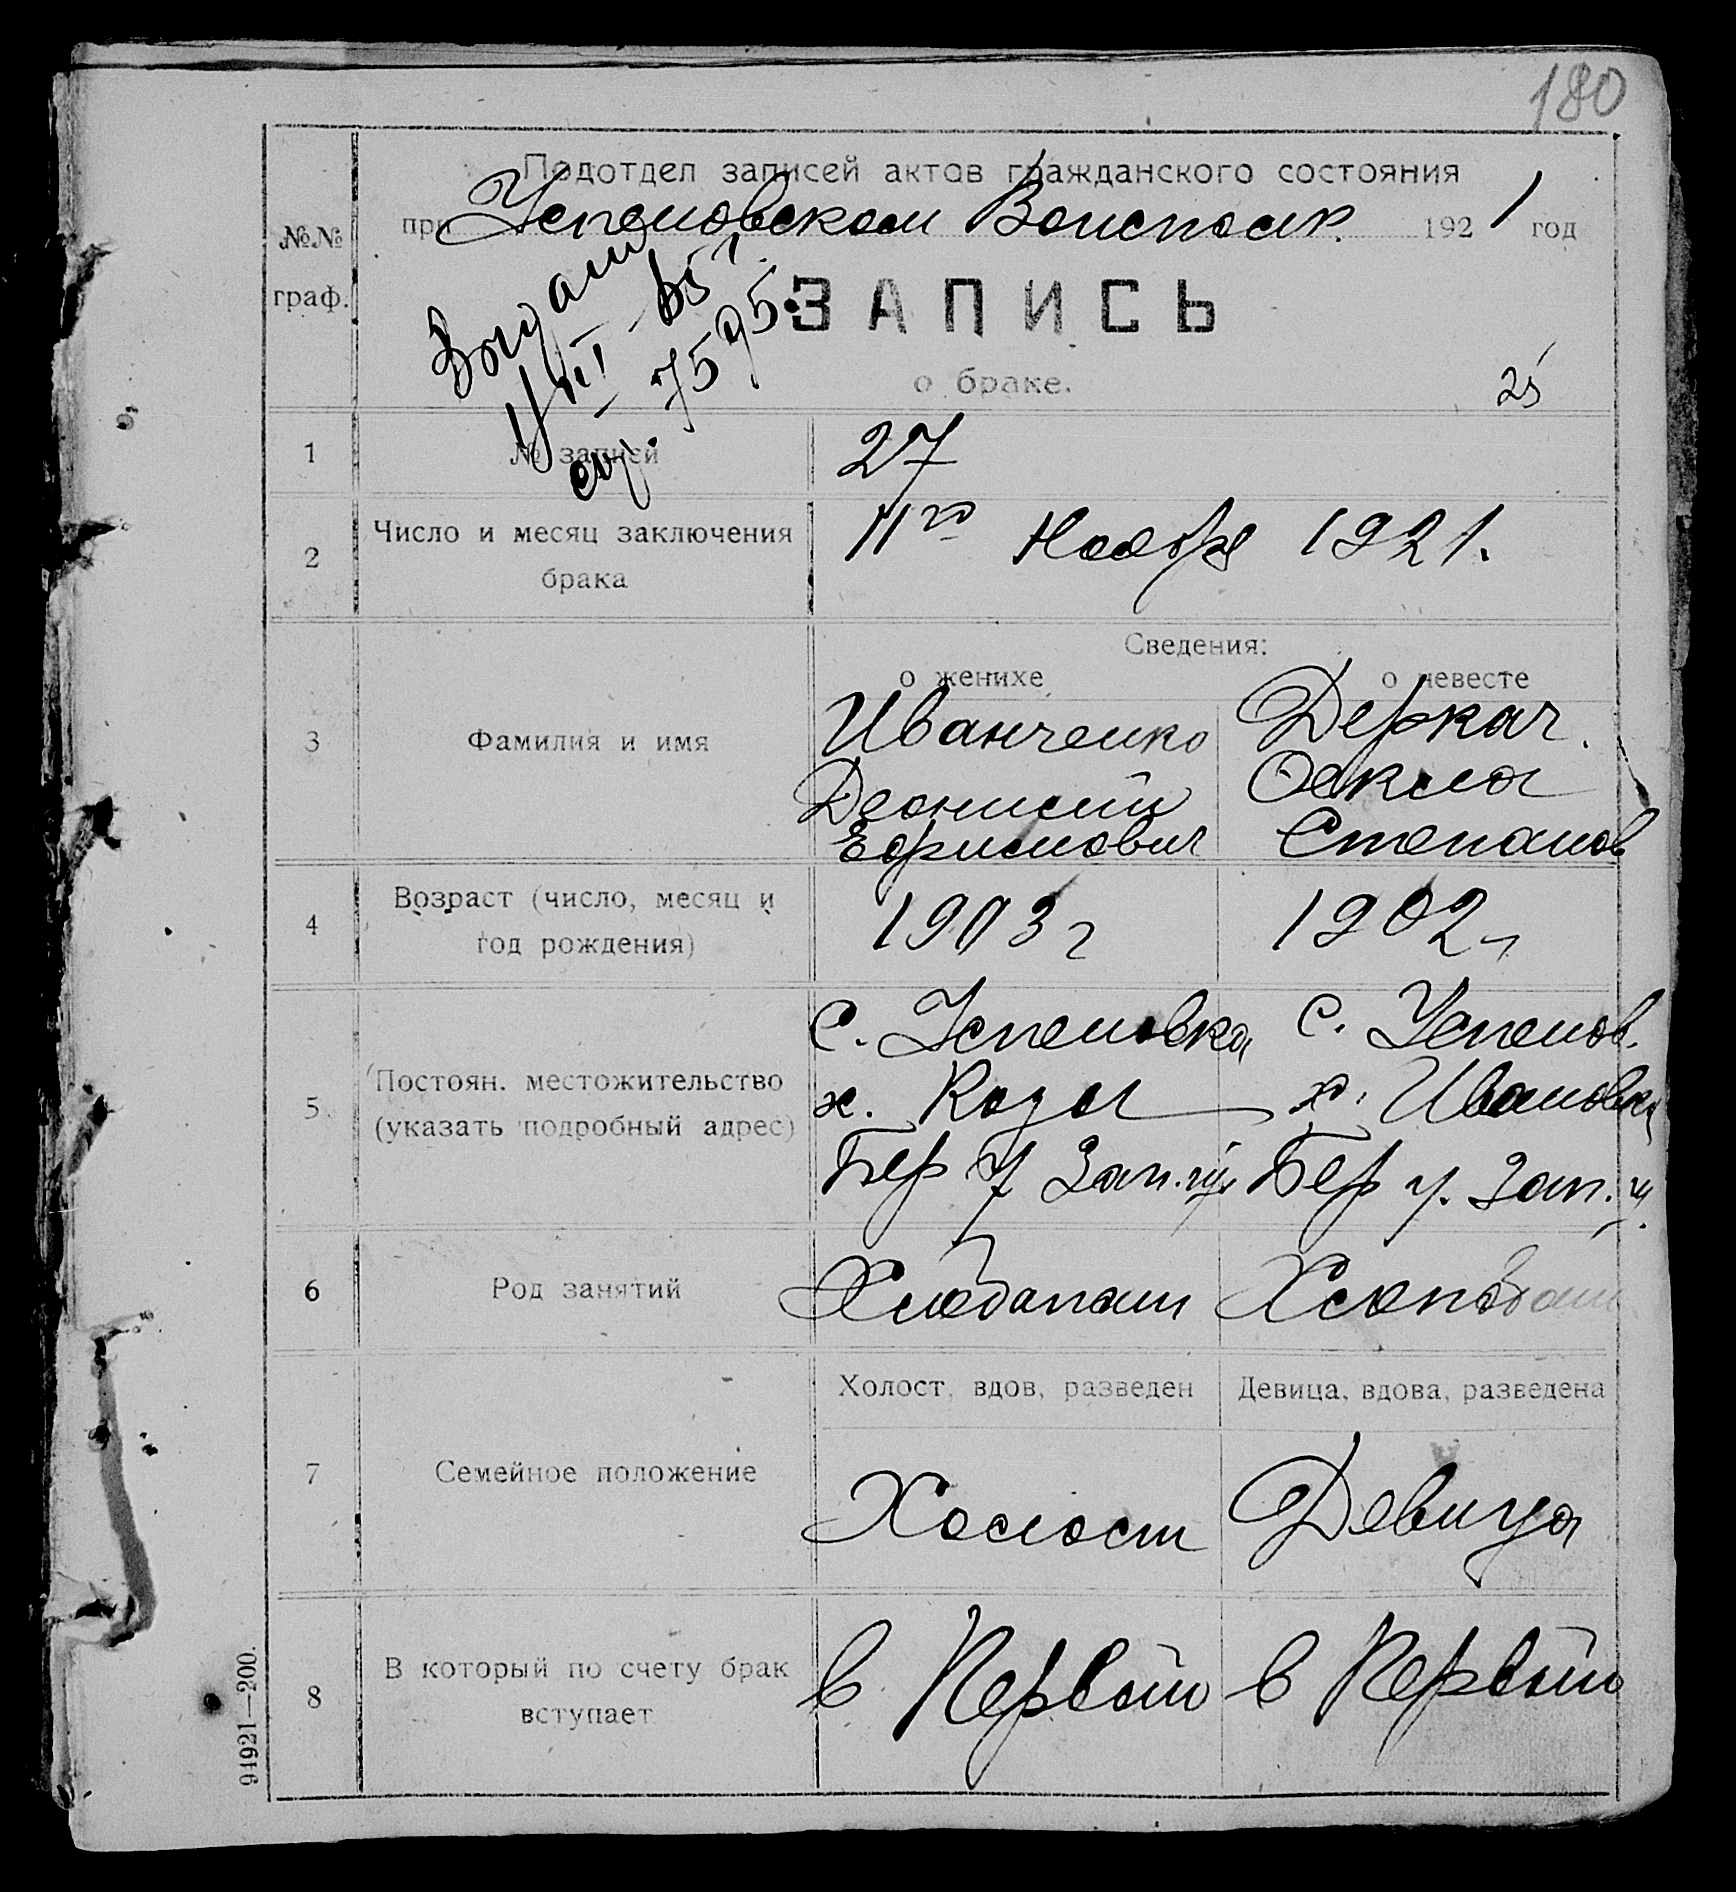 180
Подотдел записей актов гражданского состояния
при Успеновском Волисполк. 1921 год
№№ граф.
ЗАПИСЬ
о браке.
25
1 № записей 27
2 Число и месяц заключения брака 11го Ноября 1921.
Сведения:
о женихе о невесте
3 Фамилия и имя
Иванченко Деркач.
Деонисий
Ефримович Степанов
4 Возраст (число, месяц и год рождения) 1903 г 1902 г
5 Постоян. местожительство (указать подробный адрес)
с. Успеновка с. Успенов.
х. х. Ивановка
Бер у Зап. гу Бер у. Зап. г
6 Род занятий
Хлебапаш Хлепобаш
Холост, вдов, разведен Девица, вдова, разведена
7 Семейное положение Холост Девица
8 В который по счету брак вступает в Первый в Первый
94921—200.